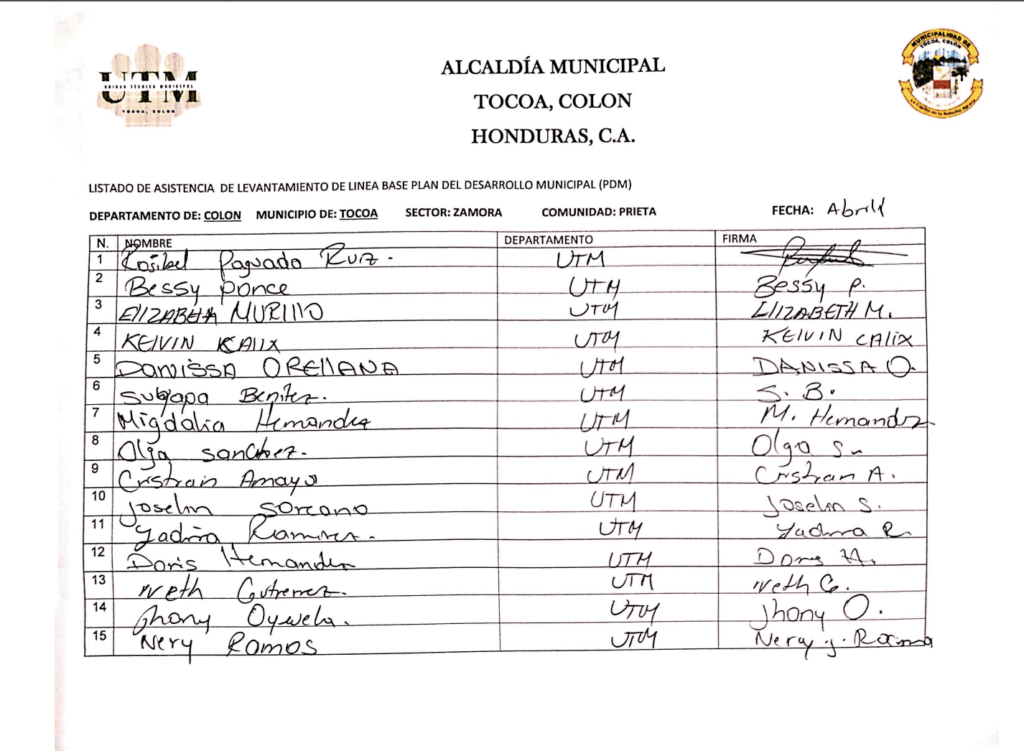 UTM
UNIDAD TÉCNICA MUNICIPAL
TOCOA, COLON
MUNICIPALIDAD DE
TOCOA, COLÓN
ALCALDÍA MUNICIPAL
TOCOA, COLON
HONDURAS, C.A.
LISTADO DE ASISTENCIA DE LEVANTAMIENTO DE LINEA BASE PLAN DEL DESARROLLO MUNICIPAL (PDM)
DEPARTAMENTO DE: COLON MUNICIPIO DE: TOCOA SECTOR: ZAMORA COMUNIDAD: PRIETA FECHA: Abril
N. NOMBRE DEPARTAMENTO FIRMA
1 Rosibel Paguada Ruiz. UTM
2 Bessy Ponce UTM Bessy P.
3 ElIZABEtH MURIllO UTM ElIZABETH M.
4 KELVIN KALIX UTM KELVIN CALIX
5 DANISSA ORELLANA UTM DANISSA O.
6 Suyapa Benitez. UTM S. B.
7 Migdalia Hernandez UTM M. Hernandez
8 Olga Sanchez. UTM Olga S.
9 Cristian Amaya UTM Cristian A.
10 Joselin Sorcano UTM Joselin S.
11 Yadira Ramirez. UTM Yadira R.
12 Doris Hernandez UTM Doris H.
13 Iveth Gutierrez. UTM Iveth G.
14 Jhony UTM Jhony O.
15 Nery Ramos UTM Nery J. Ramos